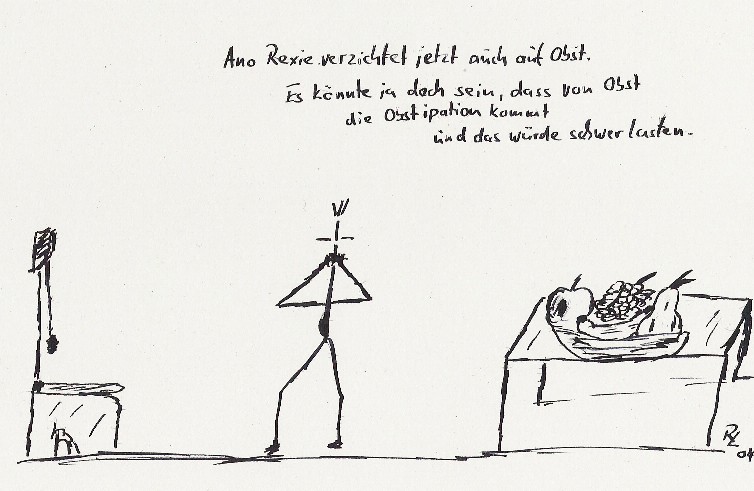 Ano Rexie verzichtet jetzt auch auf Obst.
Es könnte ja doch sein, dass von Obst
die Obstipation kommt
und das würde schwer lasten.
RL
04